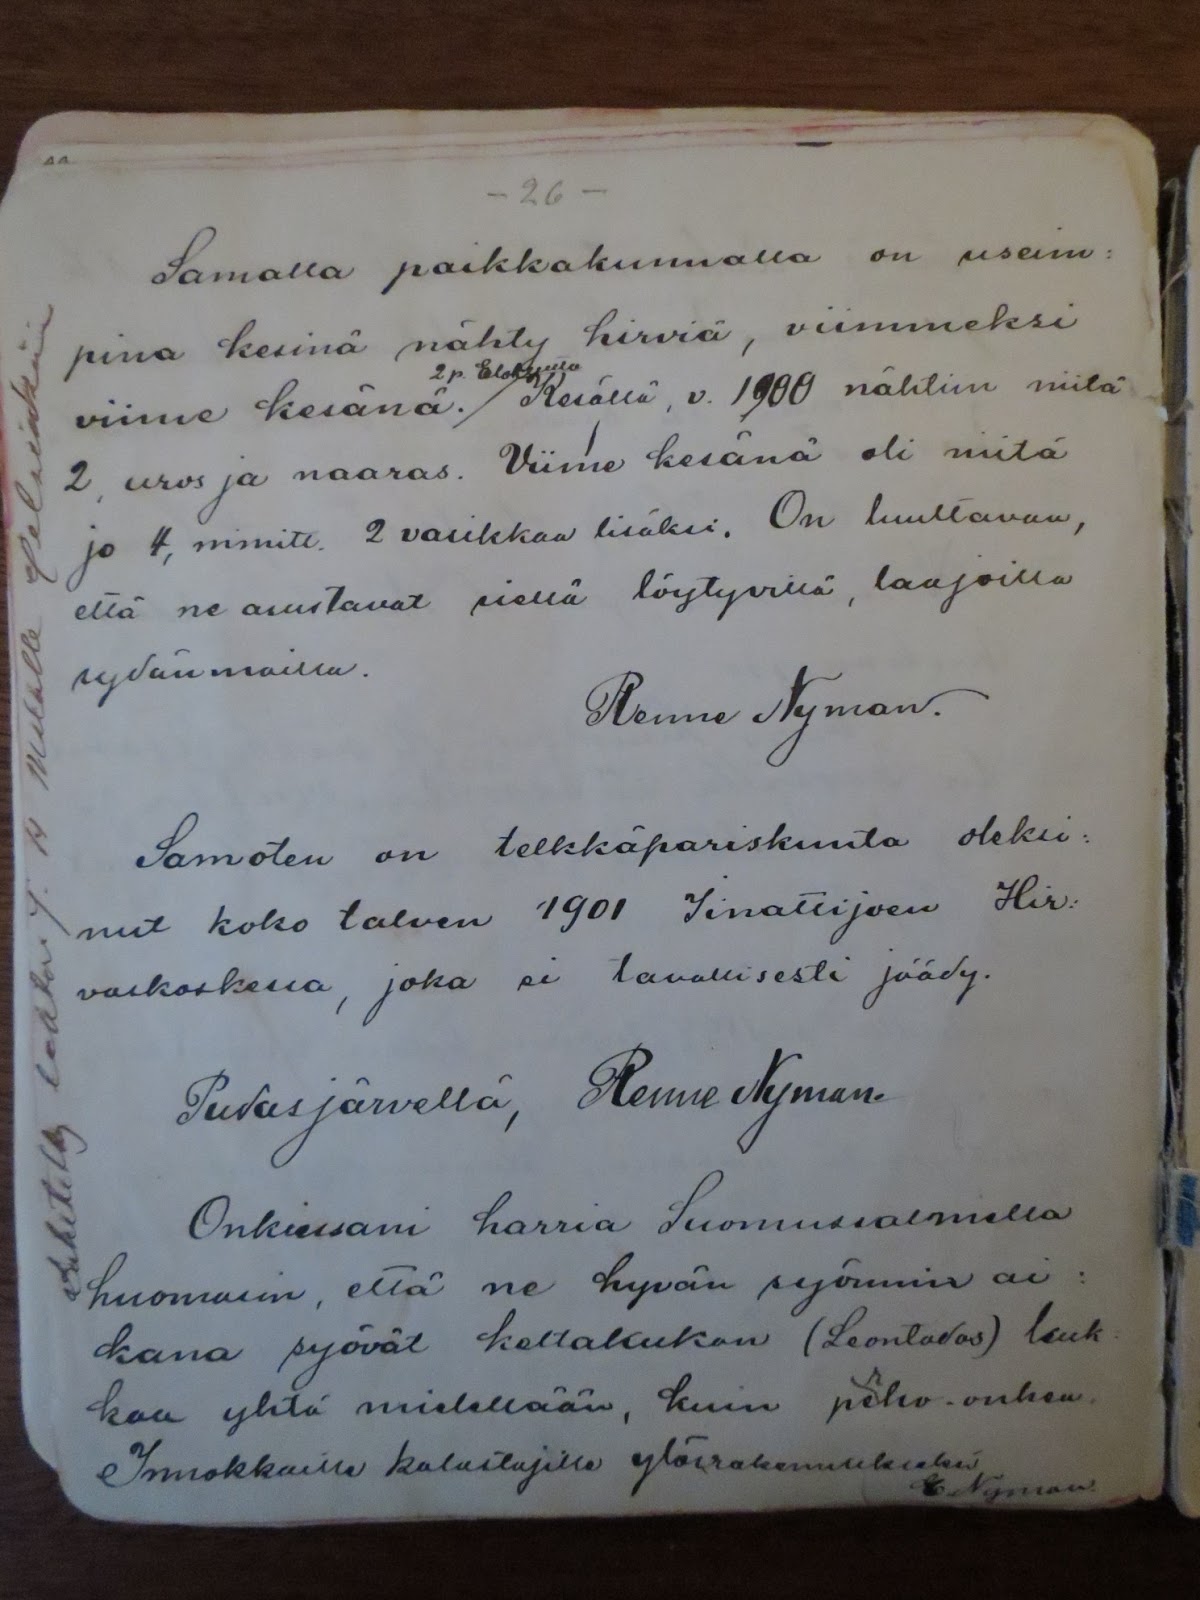 - 26 -
Samalla paikkakunnalla on useim:
pina kesinä nähty hirviä, viimmeksi
2 p. Elokuuta
viime kesänä. Kesällä, v. 1900 nähtiin niitä
2, uros ja naaras. Viime kesänä oli niitä
jo 4, nimitt. 2 vasikkaa lisäksi. On luultavaa,
että ne asustavat siellä löytyvillä, laajoilla
sydänmailla.
Renne Nyman.
Samoten on telkkäpariskunta oleksi:
nut koko talven 1901 Iinattijoen Hir:
vaskoskessa, joka ei tavallisesti jäädy.
Pudasjärvellä, Renne Nyman.
Onkiessani harria Suomussalmella
huomasin, että ne hyvän syönnin ai:
kana syövät keltakukan (Leontodos) kuk:
kaa yhtä mielellään, kuin perho-onkea.
Innokkaille kalastajille ylösrakennukseksi
E Nyman.
lehtori J. A